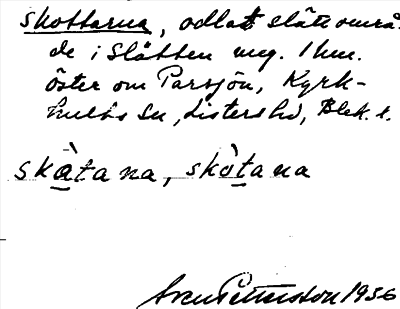 skottarna, odlat slättområ-
de i Slätten ung. 1 km.
öster om Parsjön, Kyrk-
hults sn, Listers hd, Blek. l.
skàtana, skòtana
Sven Pettersson 1956